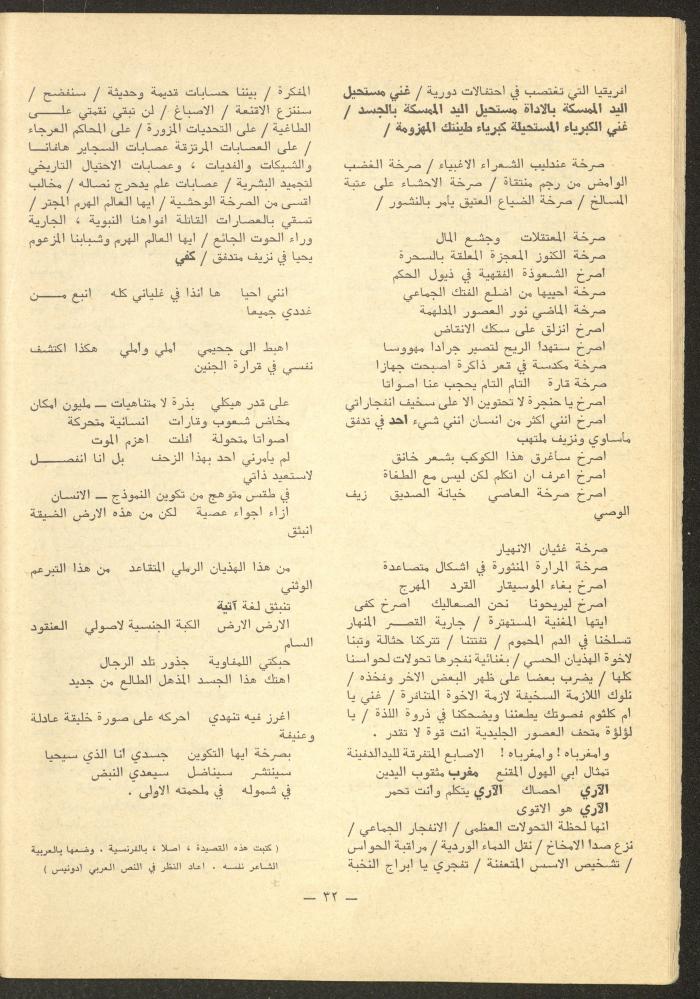 افريقيا التي تغتصب في احتفالات دورية / غني مستحيل
اليد الممسكة بالاداة مستحيل اليد الممسكة بالجسد /
غني الكبرياء المستحيلة كبرياء طينتك المهزومة /
صرخة عندليب الشعراء الاغبياء / صرخة الغضب
الوامض من رجم منتقاة / صرخة الاحشاء على عتبة
المسالخ / صرخة الضياع العتيق يأمر بالنشور /
صرخة المعتقلات وجشع المال
صرخة الكنوز المعجزة المعلقة بالسحرة
اصرخ الشعوذة الفقهية في ذيول الحكم
صرخة احييها من اضلع الفتك الجماعي
صرخة الماضي نور العصور المدلهمة
اصرخ انزلق على سكك الانقاض
اصرخ ستهدا الريح لتصير جرادا مهووسا
صرخة مكدسة في قعر ذاكرة اصبحت جهازا
صرخة قارة التام التام يحجب عنا اصواتا
اصرخ يا حنجرة لا تحتوين الا على سخيف انفجاراتي
اصرخ انني أكثر من انسان انني شيء احد في تدفق
مأساوي ونزيف ملتهب
اصرخ سأغرق هذا الكوكب بشعر خانق
اصرخ اعرف ان اتكلم لكن ليس مع الطغاة
اصرخ صرخة العاصي خيانة الصديق زيف
الوصي
صرخة غثيان الانهيار
صرخة المرارة المنثورة في اشكال متصاعدة
اصرخ بغاء الموسيقار القرد المهرج
اصرخ ليريحونا نحن الصعاليك اصرخ كفى
ايتها المغنية المستهترة / جارية القصر المنهار
تسلخنا في الدم المحموم / تفتتنا / تتركنا حثالة وتبنا
لاخوة الهذيان الحسي / بغنائية نفجرها تحولات لحواسنا
كلها / يضرب بعضا على ظهر البعض الاخر وفخذه /
نلوك اللازمة السخيفة لازمة الاخوة المتنافرة / غني يا
ام كلثوم فصوتك يطعننا ويضحكنا في ذروة اللذة / يا
لؤلؤة متحف العصور الجليدية انت قوة لا تقدر .
وامغرباه ! وامغرباه ! الاصابع المتفرقة لليدالدفينة
تمثال ابي الهول المقنع مغرب مثقوب اليدين
الآري احصاك الآري يتكلم وانت تحمر
الآري هو الاقوى
انها لحظة التحولات العظمى / الانفجار الجماعي /
نزع صدا الامخاخ / نقل الدماء الوردية / مراقبة الحواس
/ تشخيص الاسس المتعفنة / تفجري يا ابراج النخبة
المفكرة / بيننا حسابات قديمة وحديثة / سنفضح /
سننزع الاقنعة / الاصباغ / لن تبقي نقمتي علـــى
الطاغية / على التحديات المزورة / على المحاكم العرجاء
/ على العصابات المرتزقة عصابات السجاير هافانـــا
والشيكات والفديات ، وعصابات الاحتيال التاريخي
لتجميد البشرية / عصابات علم يدحرج نصاله / مخالب
اقسى من الصرخة الوحشية / ايها العالم الهرم المجتر /
تسقي بالعصارات القاتلة افواهنا النبوية ، الجارية
وراء الحوت الجائع / ايها العالم الهرم وشبابنا المزعوم
يحيا في نزيف متدفق / كفي
انني احيا ها انذا في غلياني كله انبع مـــن
غددي جميعا
اهبط الى جحيمي املي واملي هكذا اكتشف
نفسي في قرارة الجنين
على قدر هيكلي بذرة لا متناهيات ــ مليون امكان
مخاض شعوب وقارات انسانية متحركة
اصواتا متحولة افلت اهزم الموت
لم يأمرني احد بهذا الزحف بل انا انفصـــل
لاستعيد ذاتي
في طقس متوهج من تكوين النموذج ــ الانسان
ازاء اجواء عصية لكن من هذه الارض الضيقة
انبثق
من هذا الهذيان الرملي المتقاعد من هذا التبرعم
الوثني
تنبثق لغة آتية
الارض الارض الكبة الجنسية لاصولي العنقود
السام
حبكتي اللمفاوية جذور تلد الرجال
اهتك هذا الجسد المذهل الطالع من جديد
اغرز فيه تنهدي احركه على صورة خليقة عادلة
وعنيفة
بصرخة ايها التكوين جسدي انا الذي سيحيا
سينتشر سيناضل سيعدي النبض
في شموله في ملحمته الاولى .
( كتبت هذه القصيدة ، اصلا ، بالفرنسية . وضعها بالعربية
الشاعر نفسه . اعاد النظر في النص العربي ادونيس )
ــ ٣٢ ــ